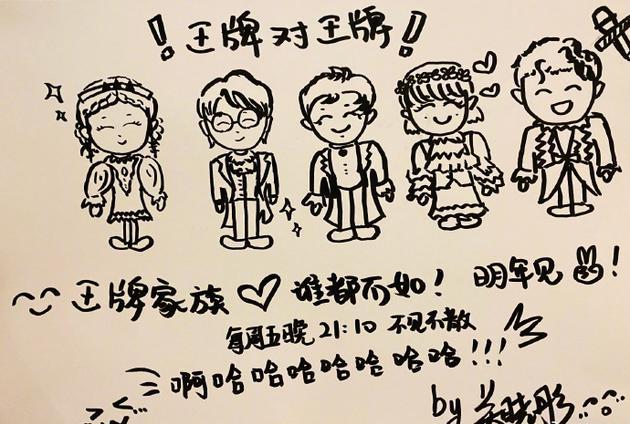 ！王牌对王牌！
王牌家族♡谁都不如！ 明年见✌！
每周五晚 21:10 不见不散
啊哈哈哈哈哈哈哈!!!
by 关晓彤